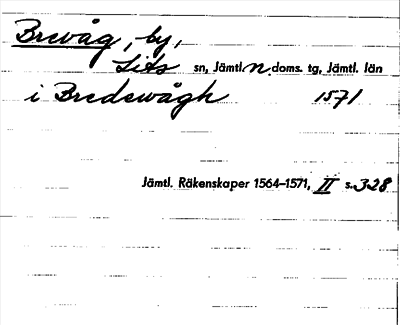 Brevåg, by,
Lits sn, Jämtl. n. doms. tg, Jämtl. län
i Bredewågh 1571
Jämtl. Räkenskaper 1564–1571, II s. 328